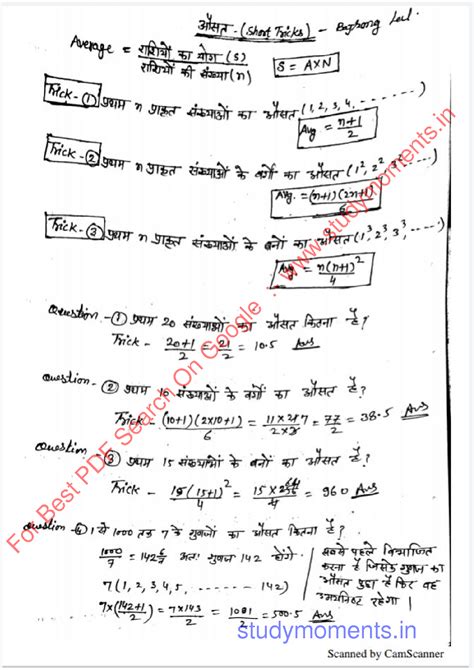 औसत - (Short Tricks) -
Average = राशियों का योग (S) / राशियों की संख्या (n)
S = A×N
Trick - ① प्रथम n प्राकृत संख्याओं का औसत (1, 2, 3, 4, ------)
Avg = n+1 / 2
Trick - ② प्रथम n प्राकृत संख्याओं के वर्गों का औसत (1², 2², 3² ----)
Avg. = (n+1)(2n+1) / 6
Trick - ③ प्रथम n प्राकृत संख्याओं के घनों का औसत (1³, 2³, 3³, ----)
Avg = n(n+1)² / 4
Question - ① प्रथम 20 संख्याओं का औसत कितना है?
Trick - 20+1 / 2 = 21 / 2 = 10.5 Ans
Question - ② प्रथम 10 संख्याओं के वर्गों का औसत है?
Trick - (10+1)(2×10+1) / 6 = = 77 / 2 = 38.5 Ans
Question - ③ प्रथम 15 संख्याओं के घनों का औसत है?
Trick - 15(15+1)² / 4 = = 960 Ans
Question - ④ 1 से 1000 तक 7 के गुणजों का औसत कितना है?
1000 / 7 = 142 6/7 अतः गुणज 142 होंगे।
7 (1, 2, 3, 4, 5, ------ 142)
7×(142+1) / 2 = 7×143 / 2 = 1001 / 2 = 500.5 Ans
सबसे पहले विभाजित
करना है जिसके गुणज का
औसत पूछा है फिर वह
रहेगा।
For Best PDF Search On Google www.studymoments.in
studymoments.in
Scanned by CamScanner